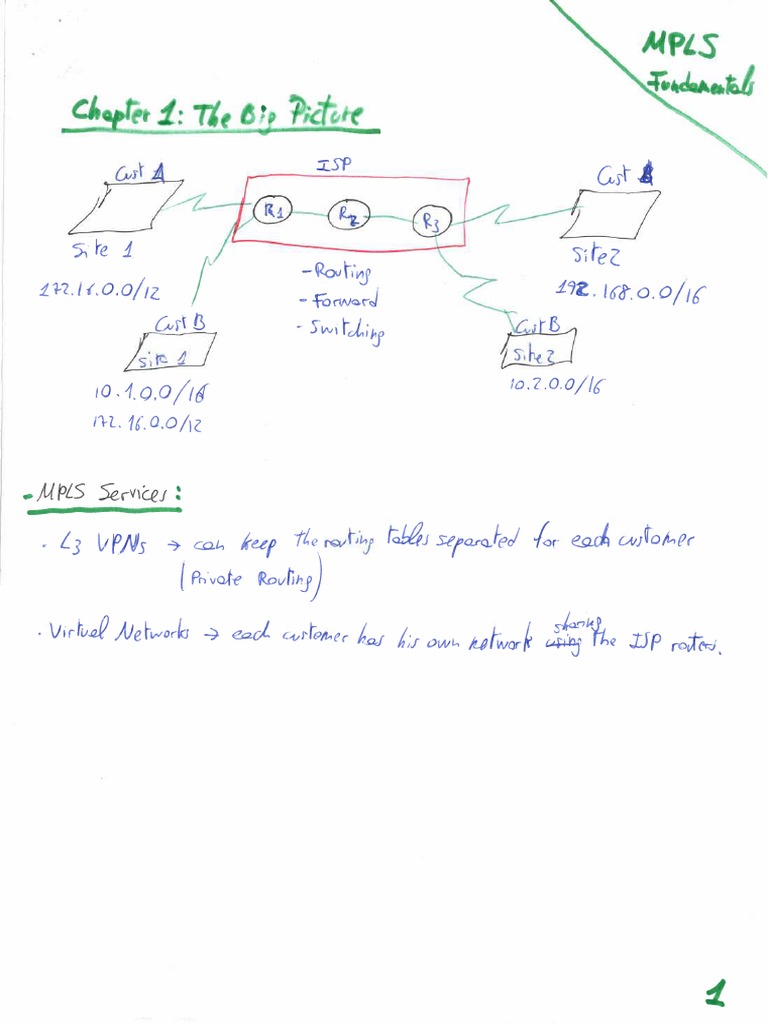 MPLS
Fundamentals
Chapter 1: The Big Picture
ISP
Cust A
Site 1
172.16.0.0/12
R1
R2
R3
Cust
Site 2
192.168.0.0/16
- Routing
- Forward
- Switching
Cust B
Site 1
10.1.0.0/16
172.16.0.0/12
Cust B
Site 2
10.2.0.0/16
- MPLS Services:
. L3 VPNs → can keep the routing tables separated for each customer
(Private Routing)
. Virtual Networks → each customer has his own network using sharing the ISP routers.
1